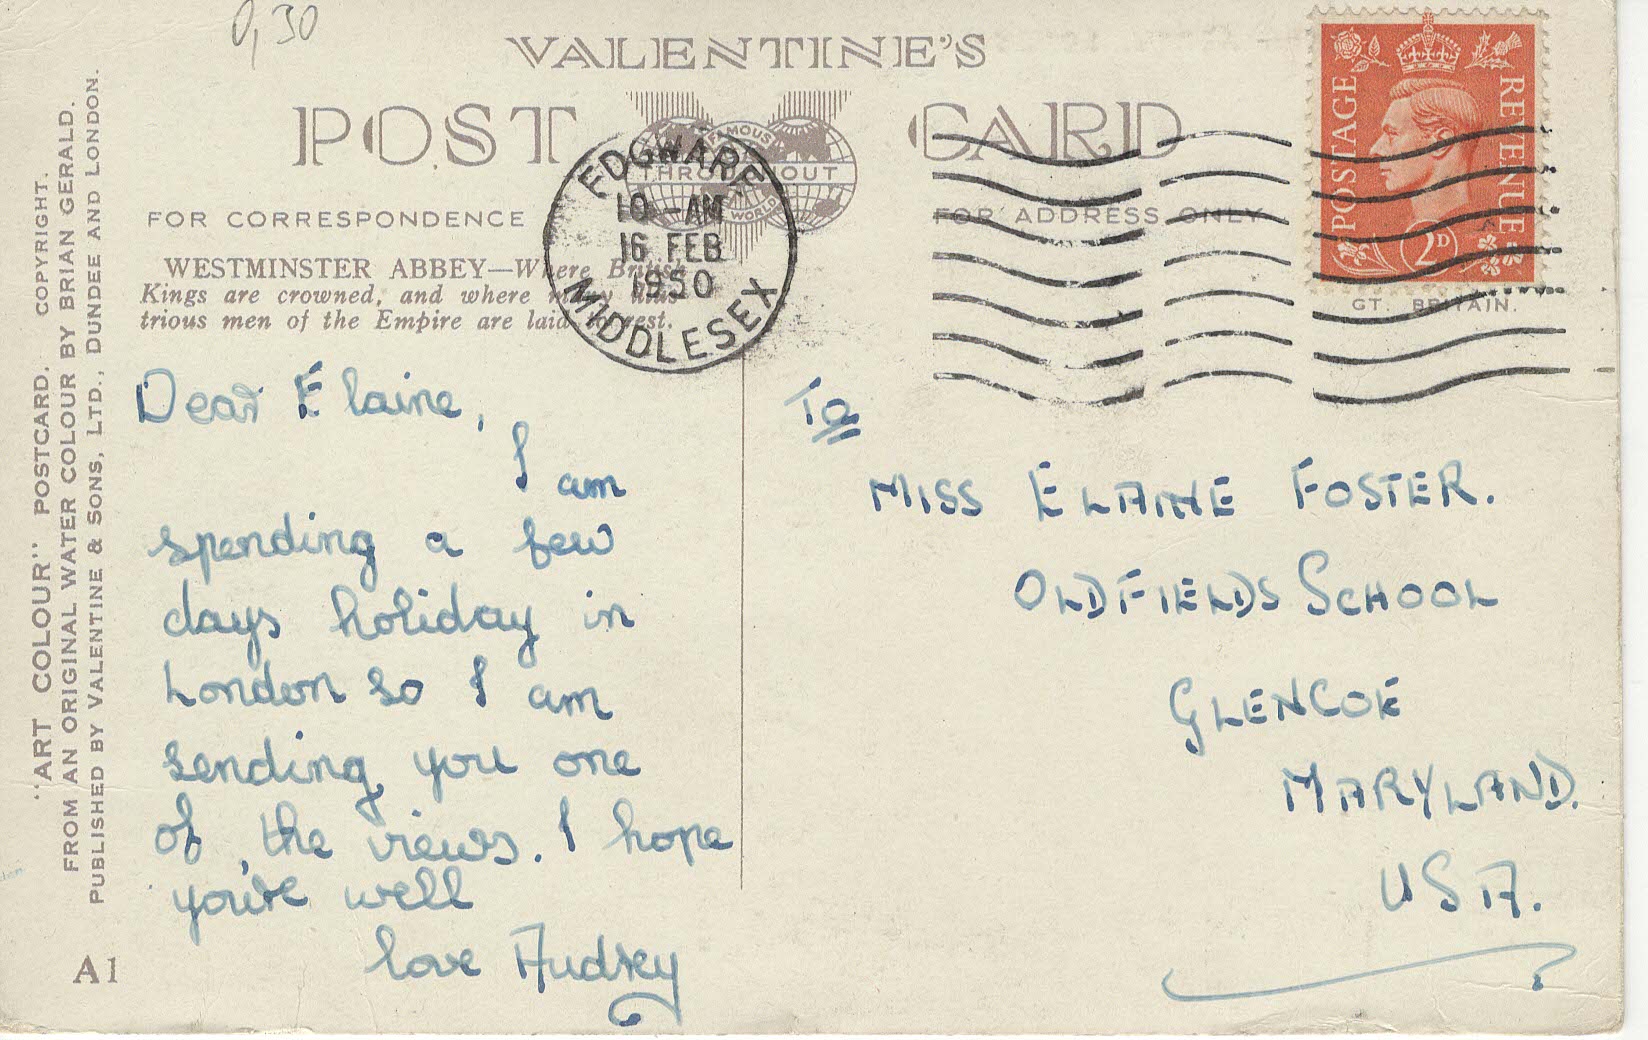 0,30
VALENTINE'S
POST CARD
FAMOUS
THROUGHOUT
WORLD
FOR CORRESPONDENCE
FOR ADDRESS ONLY
WESTMINSTER ABBEY—Where British
Kings are crowned, and where many illus-
trious men of the Empire are laid to rest.
EDGWARE
10 AM
16 FEB
1950
MIDDLESEX
POSTAGE
REVENUE
2D
GT. BRITAIN.
"ART COLOUR" POSTCARD. COPYRIGHT.
FROM AN ORIGINAL WATER COLOUR BY BRIAN GERALD.
PUBLISHED BY VALENTINE & SONS, LTD., DUNDEE AND LONDON.
A1
Dear Elaine,
I am
spending a few
days holiday in
London so I am
sending you one
of the views. I hope
you're well
love Audrey
To
MISS ELAINE FOSTER.
OLDFIELDS SCHOOL
GLENCOE
MARYLAND.
USA.